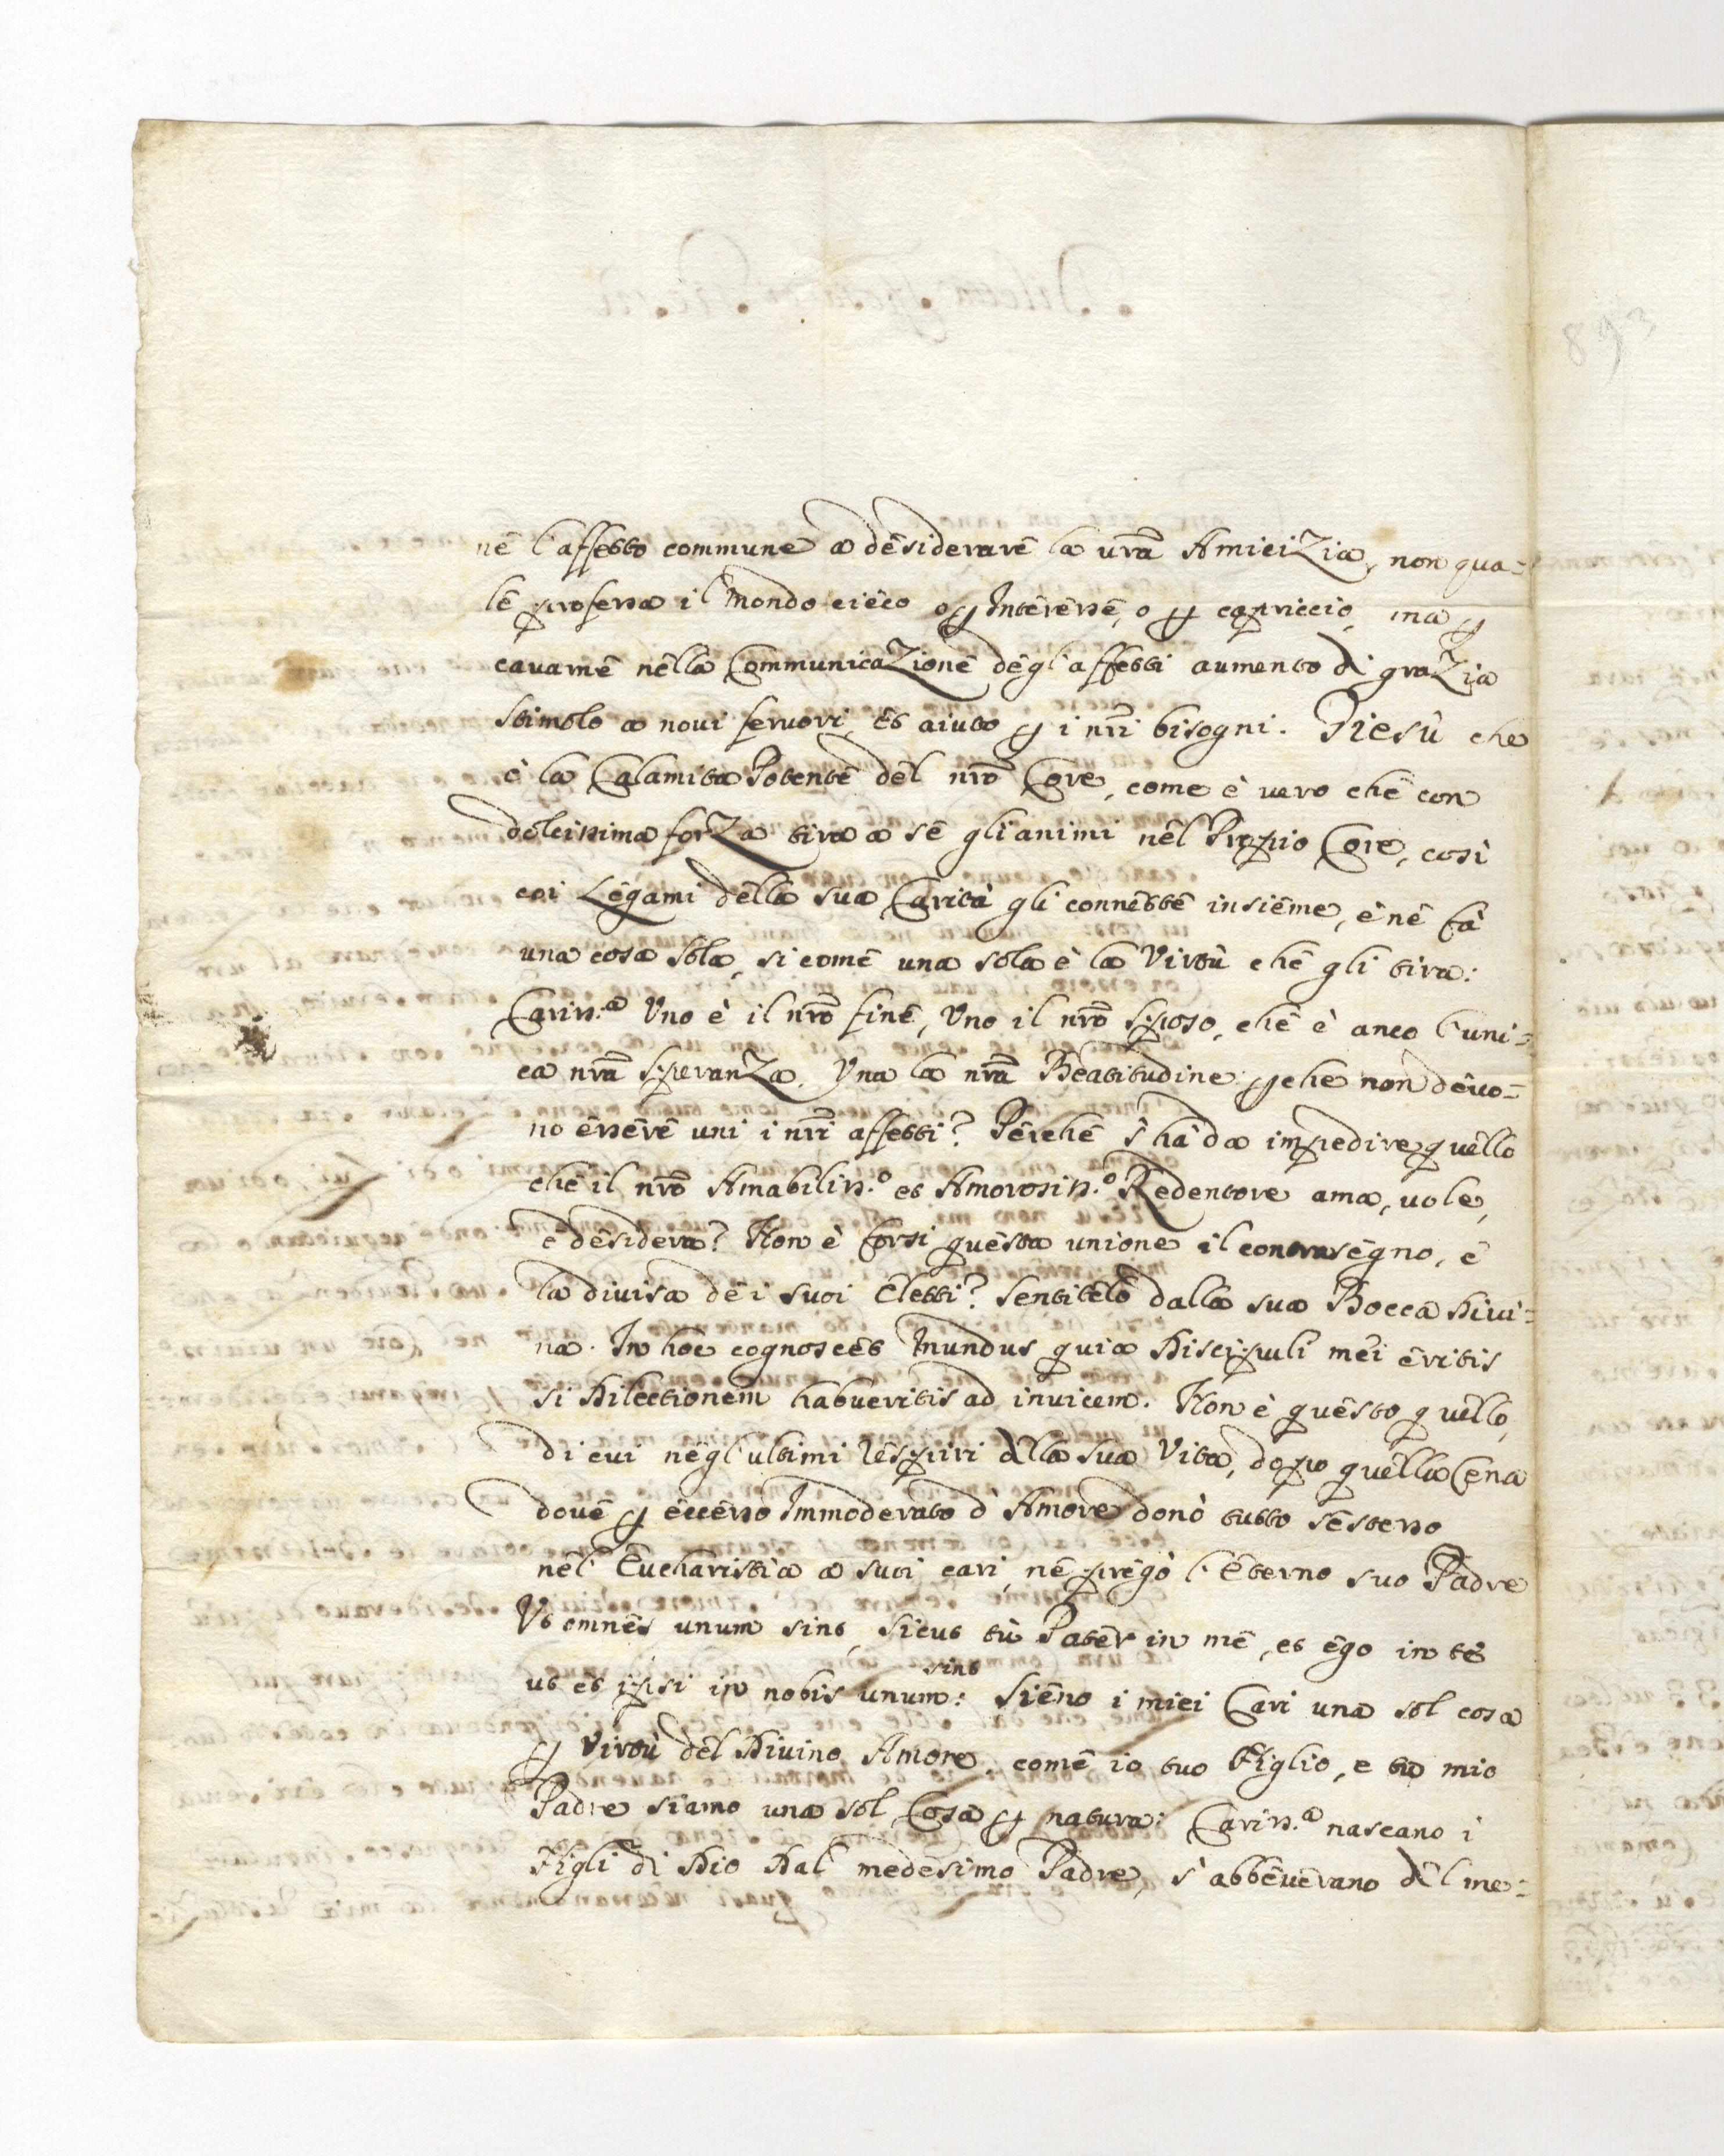 nè l'affetto commune a desiderare la vrã Amicizia, non qua=
le professa il Mondo cieco o ꝑ Interesse, o ꝑ capriccio, ma ꝑ
cavarne nella Communicazione degl'affetti aumento di grazia
stimolo a novi fervori, et aiuto ꝑ i nrĩ bisogni. Giesù che
è la Calamita Potente del nrõ Core, come è vero che con
dolcissima forza tira a sè gli animi nel Proprio Core, così
coi Legami della sua Carità gli connette insieme, e ne fà
una cosa sola, sì come una sola è la Virtù che gli tira:
Cariss.ª Uno è il nrõ fine, Uno il nrõ Sposo, che è anco l'uni=
ca nrã Speranza. Una la nrã Beatitudine ꝑche non devo=
no essere uni i nrĩ affetti? Perchè s'hà da impedire quello
che il nrõ Amabiliss.º et Amorosiss.º Redentore ama, vole,
e desidera? Non è forsi questa unione il contrasegno, e
la divisa de i suoi Eletti? Sentitelo dalla sua Bocca Divi=
na. In hoc cognoscet Mundus quia Discipuli mei eritis
si Dilectionem habueritis ad invicem. Non è questo quello,
di cui negl'ultimi respiri della sua Vita, dopo quella Cena
dove ꝑ eccesso Immoderato d'Amore donò tutto sè stesso
nel' Eucharistia a suoi cari, ne pregò l'Eterno suo Padre
Ut omnes unum sint, sicut tù Pater in me, et ego in te
sint
ut et ipsi in nobis unum: Sieno i miei Cari una sol cosa
ꝑ Virtù del Divino Amore, come io tuo Figlio, e tu mio
Padre siamo una sol Cosa ꝑ natura: Cariss.ª nascano i
Figli di Dio Dal medesimo Padre, s'abbeverano del me=
893